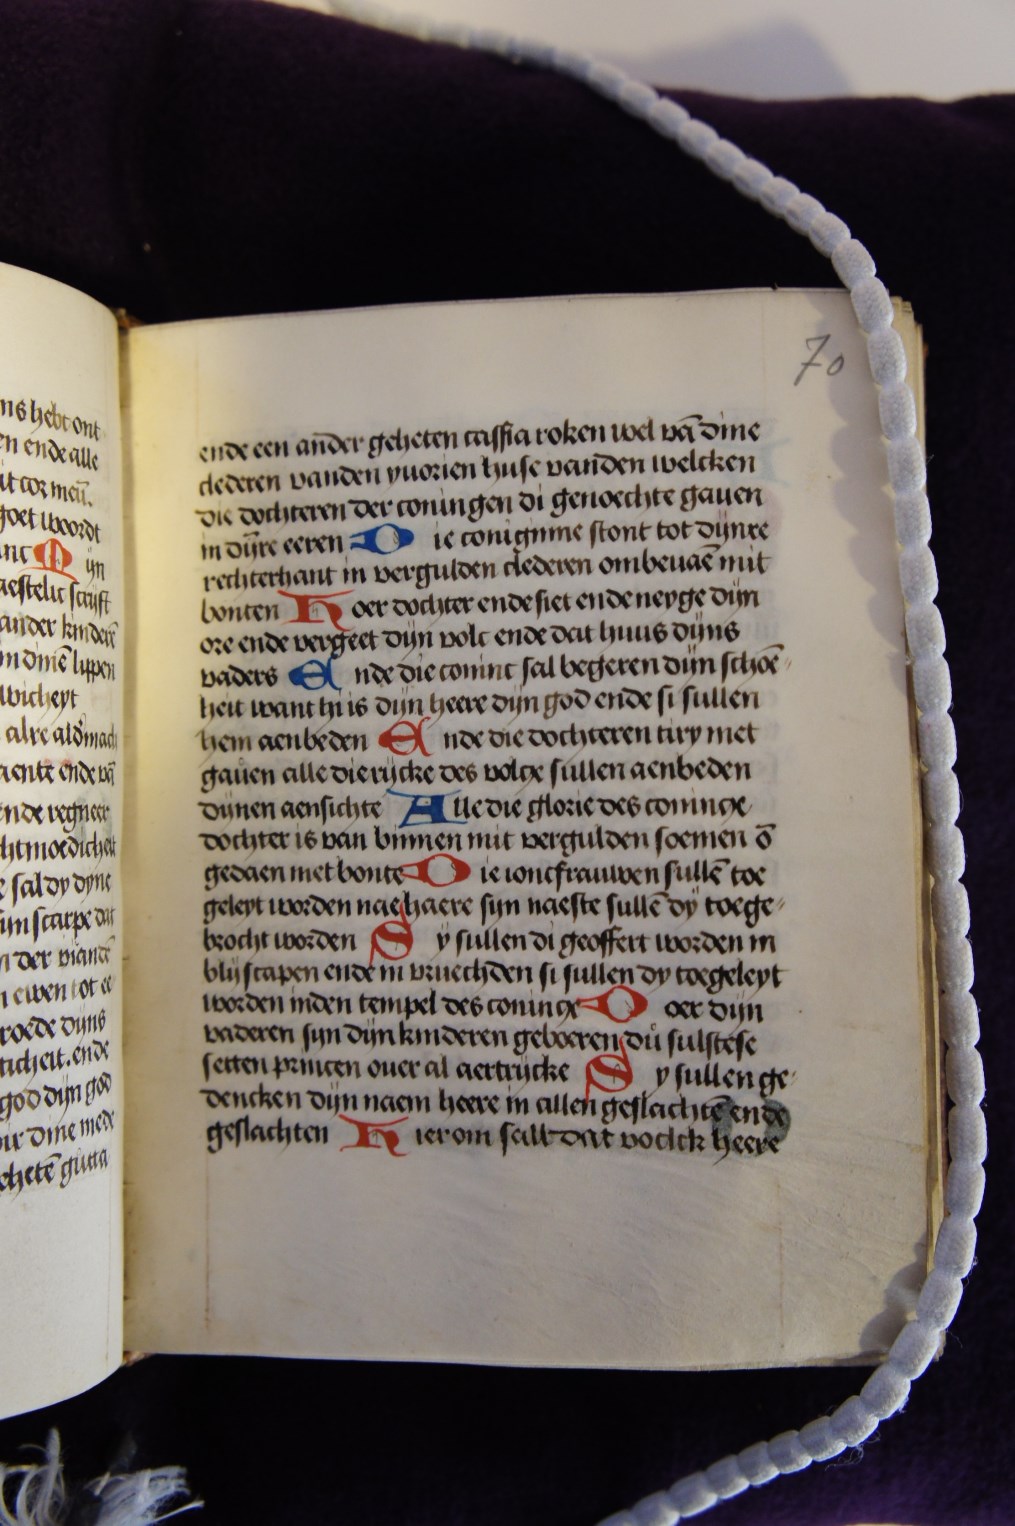 ns hebt ont
en ende alle
it cor meū.
goet woordt
M ijn
aestelic scrijft
ander kinderē
in dinē lippen
wicheyt
alre
aente ende vā
ende regneer
htmoedicheit
e sal dy dyne
ijn scarpe dat
n der viandē
n ewen tot ee
roede dijns
ticheit. ende
god dijn god
dine mede
ehetē gutta
70
ende een ander geheten cassia roken wel vā dine
clederen vanden yuorien huse vanden welcken
die dochteren der coningen di genoechte gauen
in dijre eeren D ie conignine stont tot dijnre
rechterhant in vergulden clederen ombeuaē mit
bonten H oer dochter ende siet ende neyge dijn
ore ende vergeet dijn volc ende dat huus dijns
vaders E nde die conint sal begeren dijn schoē-
heit want hi is dijn heere dijn god ende si sullen
hem aenbeden E nde die dochteren tiry met
gauen alle die rijcke des volcx sullen aenbeden
dijnen aensichte A lle die glorie des conincx
dochter is van binnen mit vergulden soemen ō
gedaen met bonte D ie ioncfrauwen sullē toe
geleyt worden nae haere sijn naeste sullē dy toege-
brocht worden S y sullen di geoffert worden in
blijscapen ende in vruechden si sullen dy toegeleyt
worden inden tempel des conincx O oer dijn
vaderen sijn dijn kinderen geboeren dů sulstese
setten princen ouer al aertrijcke S y sullen ge-
dencken dijn naem heere in allen geslachtē ende
geslachten H ier om sall dat volck heere